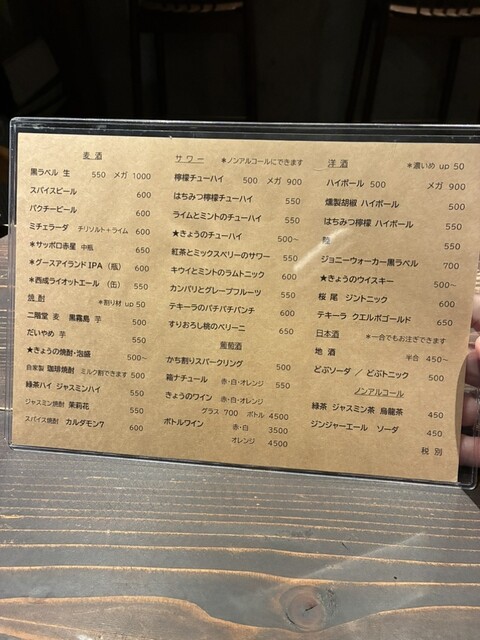 麦 酒
黒ラベル 生 550 メガ 1000
スパイスビール 600
パクチービール 600
ミチェラーダ チリソルト+ライム 600
*サッポロ赤星 中瓶 650
*グースアイランドIPA（瓶） 600
*西成ライオットエール（缶） 550
焼 酎 *割り材 up 50
二階堂 麦 黒霧島 芋 500
だいやめ 芋 550
★きょうの焼酎・泡盛 500～
自家製 珈琲焼酎 ミルク割できます 500
緑茶ハイ ジャスミンハイ 550
ジャスミン焼酎 茉莉花 550
スパイス焼酎 カルダモン7 600
サワー *ノンアルコールにできます
檸檬チューハイ 500 メガ 900
はちみつ檸檬チューハイ 550
ライムとミントのチューハイ 550
★きょうのチューハイ 500～
紅茶とミックスベリーのサワー 550
キウイとミントのラムトニック 600
カンパリとグレープフルーツ 550
テキーラのパチパチパンチ 600
すりおろし桃のベリーニ 650
葡萄酒
かち割りスパークリング 500
箱ナチュール 赤・白・オレンジ 550
きょうのワイン 赤・白・オレンジ
グラス 700 ボトル 4500
ボトルワイン 赤・白 3500
オレンジ 4500
洋 酒 *濃いめ up 50
ハイボール 500 メガ 900
燻製胡椒 ハイボール 500
はちみつ檸檬 ハイボール 550
550
ジョニーウォーカー黒ラベル 700
★きょうのウイスキー 500～
桜尾 ジントニック 600
テキーラ クエルボゴールド 650
日本酒 *一合でもお注ぎできます
地 酒 半合 450～
どぶソーダ / どぶトニック 500
ノンアルコール
緑茶 ジャスミン茶 烏龍茶 450
ジンジャーエール ソーダ 450
税 別